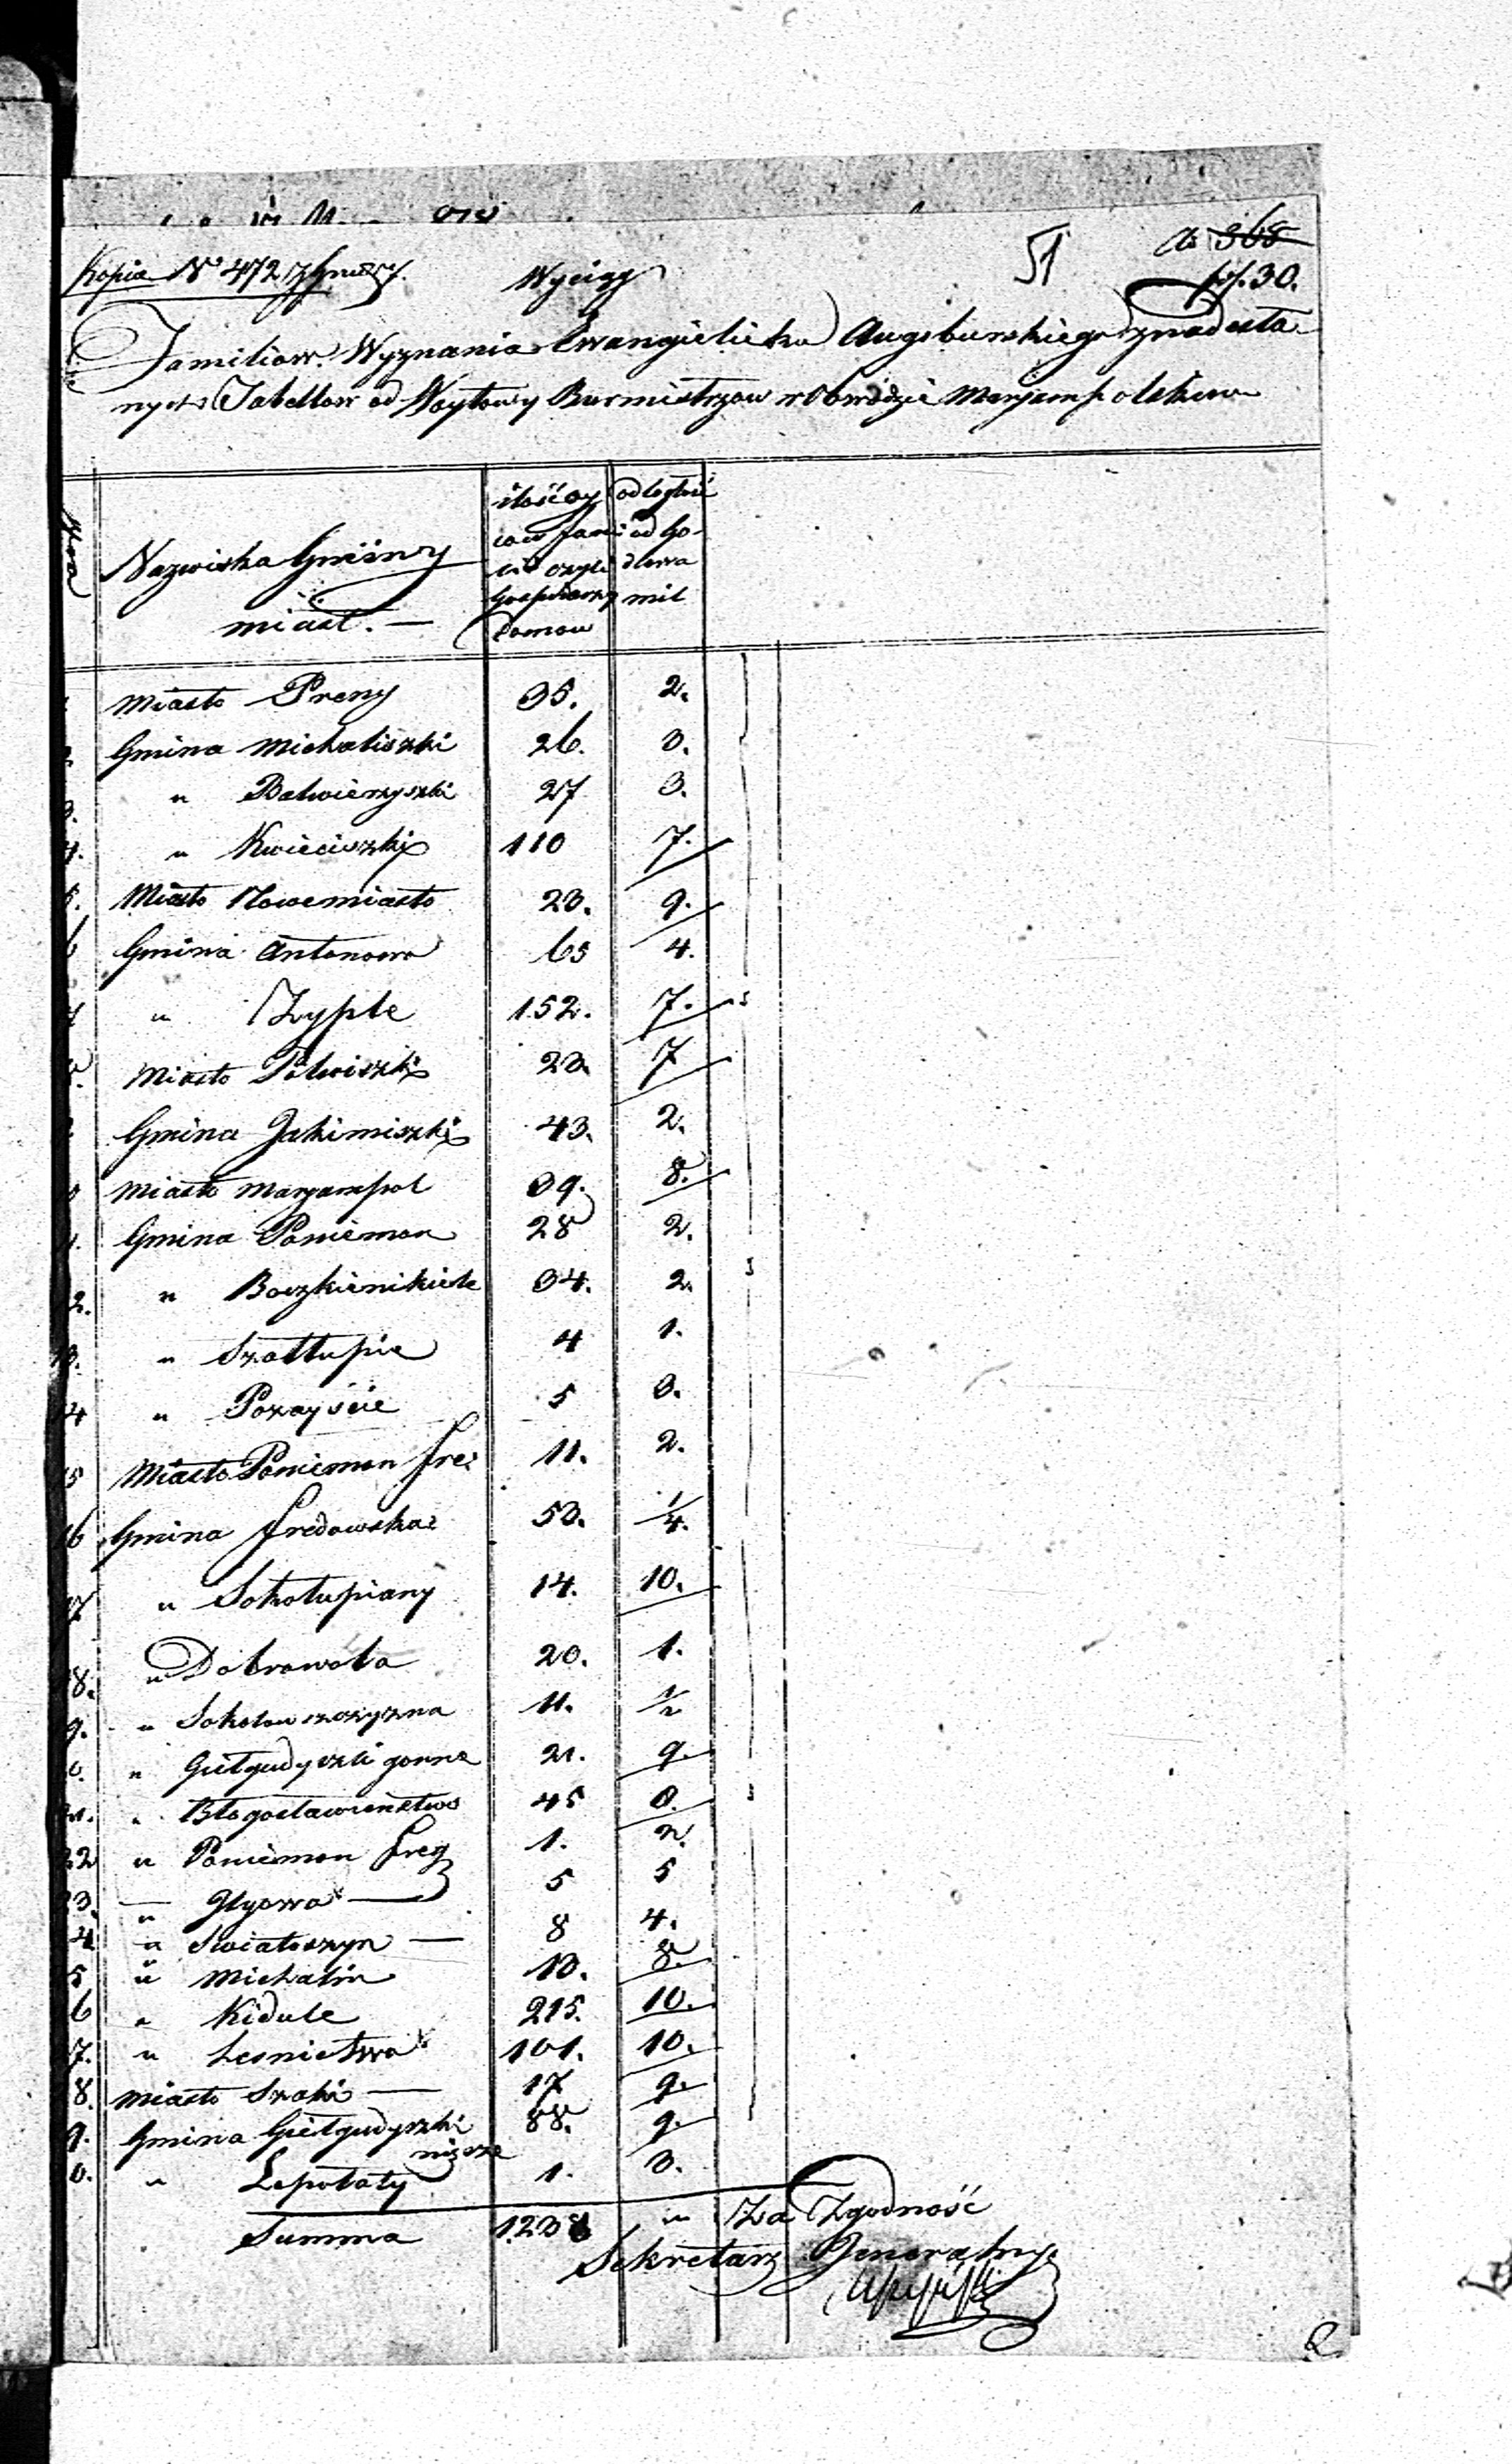 51
Kopia N° 472
Wyciąg
ad 368
30.
Familiow Wyznania Ewangielicko Augsburskiego z nadesła-
nych Tabellow od Woytow y Burmistrzow w Obwodzie Maryampolskim
Nazwiska Gminy
i
miast. —
ilość oy
cow fami
lii czyli
Gospodarzy
Domow
odległość
od Go-
dlewa
mil
Miasto Preny 35. 2.
2. Gmina Michaliszki 26. 3.
3. " Balwierzyszki 27 3.
4. " Kwieciszki 110 7.
5. Miasto Nowemiasto 23. 9.
6 Gmina Antonowo 65 4.
7 " Zyple 152. 7.
8. Miasto Pilwiszki 23. 7
Gmina Jakimiszki 43. 2.
Miasto Maryampol 39. 8.
Gmina Poniemon 28 2.
12. " Boczkienikiele 34. 2.
13. " Szaltupie 4 1.
14 " Pozayście 5 3.
15 Miasto Poniemon fre: 11. 2.
16 Gmina fredowska 53. 1/4.
17 " Sokolupiany 14. 10.
18. " Dobrowola 20. 1.
9. " Sokolowszczyzna 11. 1/2
0. " Giełgudyszki gorne 21. 9.
21. " Błogosławieństwo 45 8.
22 " Poniemon freg 1. 2.
23. " 5 5
4 " Swiatoszyn — 8 4.
5 " Michalin 13. 8.
6 " Kidule 215. 10.
7. " Lesnictwo 101. 10.
8. Miasto Szaki — 17 9.
9. Gmina Giełgudyszki 88. 9.
niższe
0. " Lepołaty 1. 3.
Summa 1238 "
Za Zgodność
Sekretarz Jeneralny